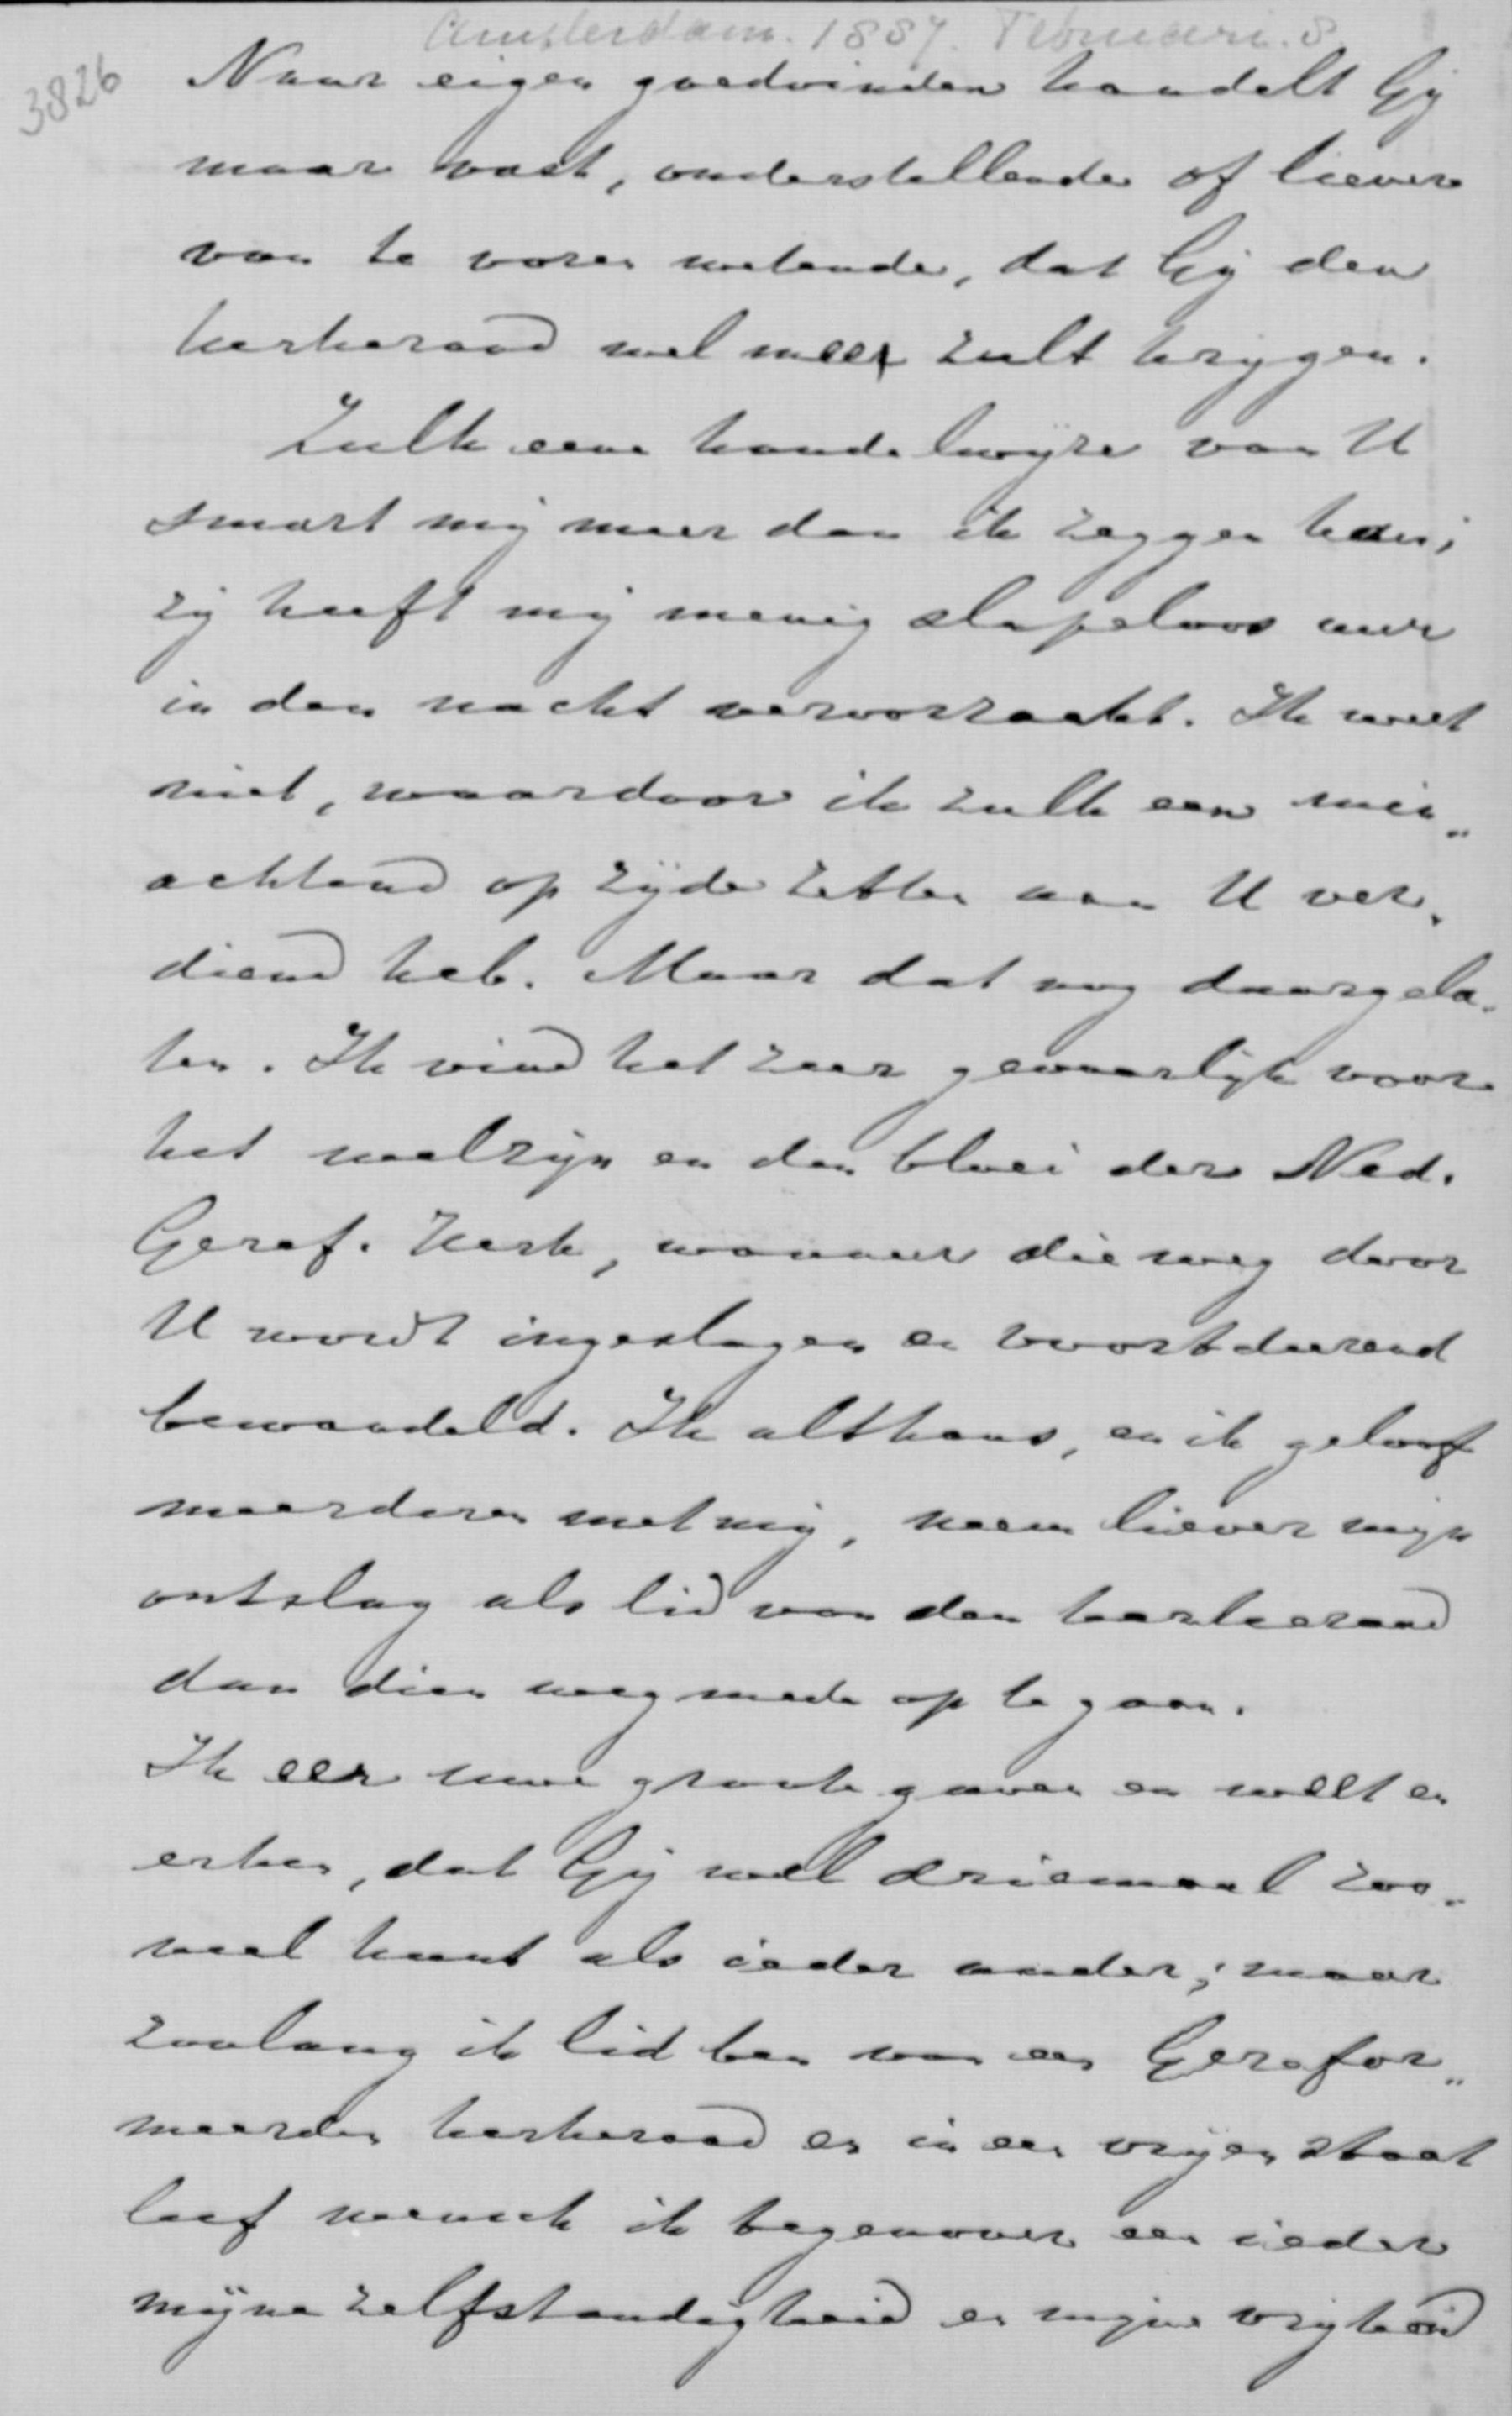 Amsterdam. 1887. Februari. 8
3826
Naar eigen goedvinden handelt Gij
maar vast, onderstellende of liever
van te voren wetende, dat Gij den
kerkeraad wel meê zult krijgen.
Zulk eene handelwijze van U
smart mij meer dan ik zeggen kan;
zij heeft mij menig slapeloos uur
in den nacht veroorzaakt. Ik weet
niet, waardoor ik zulk een min„
achtend op zijde zetten aan U ver„
diend heb. Maar dat nog daargela„
ten. Ik vind het zeer gevaarlijk voor
het welzijn en den bloei der Ned.
Geref. Kerk, wanneer die weg door
U wordt ingeslagen en voortdurend
bewandeld. Ik althans, en ik geloof
meerderen met mij, neem liever mijn
ontslag als lid van den kerkeraad
dan dien weg mede op te gaan.
Ik eer uwe groote gaven en weet en
erken, dat Gij wel driemaal zoo„
veel kunt als ieder ander; maar
zoolang ik lid ben van een Gerefor„
meerden kerkeraad en in een vrijen staat
leef wensch ik tegenover een ieder
mijne zelfstandigheid en mijne vrijheid